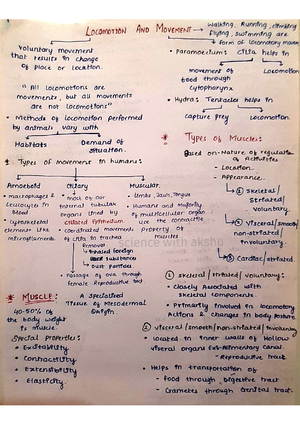 LOCOMOTION AND MOVEMENT
Walking, Running, climbing
Flying, Swimming are
form of locomotory move
Voluntary movement
that results in change
of place or location.
"All locomotions are
movements, but all movements
are not locomotions"
• Methods of locomotion performed
by animals vary with
Habitats
Demand of
situation.
• Paramoecium: cilia helps in
movement of
food through
cytopharynx
Locomotion
• Hydra: Tentacles helps in
capture prey
Locomotion
* Types of movement in humans:
Amoeboid
• macrophages &
Leucocytes in
blood
• Cytoskeletal
element like
microfilaments
Ciliary
• most of our
internal tubular
organs lined by
ciliated epithelium
• coordinated movement
of cilia in trachea
Removal
Inhaled foreign
substances
Dust particles
• Passage of ova through
female Reproductive tract
Muscular
• Limbs, Jaws, Tongue
• Humans and majority
of multicellular organ
use the contractile
property of
muscles
science with akshu
* MUSCLE:
A Specialised
Tissue of Mesodermal
Origin.
40-50% of
the body weight
is muscle.
Special properties:
• Excitability
• Contractility
• Extensibility
• Elasticity.
* Types of Muscles:
Based on - Nature of regulation
of Activities
- Location
- Appearance.
① Skeletal/
Striated/
voluntary.
② Visceral/smooth/
non-striated/
involuntary.
③ Cardiac/striated
① Skeletal/striated/voluntary:
• Closely Associated with
skeletal components.
• Primarily involved in locomotory
Actions & changes in body posture
② Visceral/smooth/non-striated/involuntary
• located in inner walls of Hollow
visceral organs Ex: Alimentary Canal.
- Reproductive tract
• Helps in transportation of
- Food through digestive tract
- Gametes through Genital tract.